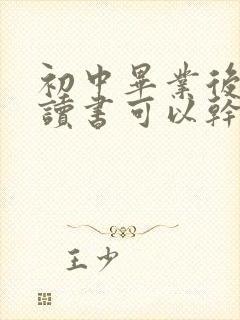 初中畢業後
讀書可以幹
王少